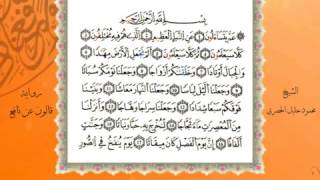 بِسْمِ اللَّهِ الرَّحْمَٰنِ الرَّحِيمِ
عَمَّ يَتَسَآءَلُونَ ۝ عَنِ النَّبَإِ الْعَظِيمِ ۝ الَّذِي هُمْ فِيهِ مُخْتَلِفُونَ ۝
كَلَّا سَيَعْلَمُونَ ۝ ثُمَّ كَلَّا سَيَعْلَمُونَ ۝ أَلَمْ نَجْعَلِ الْأَرْضَ مِهَادًا ۝
وَالْجِبَالَ أَوْتَادًا ۝ وَخَلَقْنَاكُمْ أَزْوَاجًا ۝ وَجَعَلْنَا نَوْمَكُمْ سُبَاتًا
۝ وَجَعَلْنَا اللَّيْلَ لِبَاسًا ۝ وَجَعَلْنَا النَّهَارَ مَعَاشًا ۝ وَبَنَيْنَا
فَوْقَكُمْ سَبْعًا شِدَادًا ۝ وَجَعَلْنَا سِرَاجًا وَهَّاجًا ۝ وَأَنْزَلْنَا
مِنَ الْمُعْصِرَاتِ مَآءً ثَجَّاجًا ۝ لِنُخْرِجَ بِهِ حَبًّا وَنَبَاتًا ۝ وَجَنَّاتٍ
أَلْفَافًا ۝ إِنَّ يَوْمَ الْفَصْلِ كَانَ مِيقَاتًا ۝ يَوْمَ يُنْفَخُ فِي الصُّورِ
الشيخ
محمود خليل الحصري
رواية
قالون عن نافع